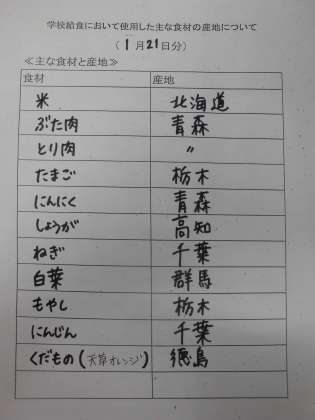 学校給食において使用した主な食材の産地について
（1月21日分）
≪主な食材と産地≫
食材 産地
米 北海道
ぶた肉 青森
とり肉 〃
たまご 栃木
にんにく 青森
しょうが 高知
ねぎ 千葉
白菜 群馬
もやし 栃木
にんじん 千葉
くだもの(天草オレンジ) 徳島